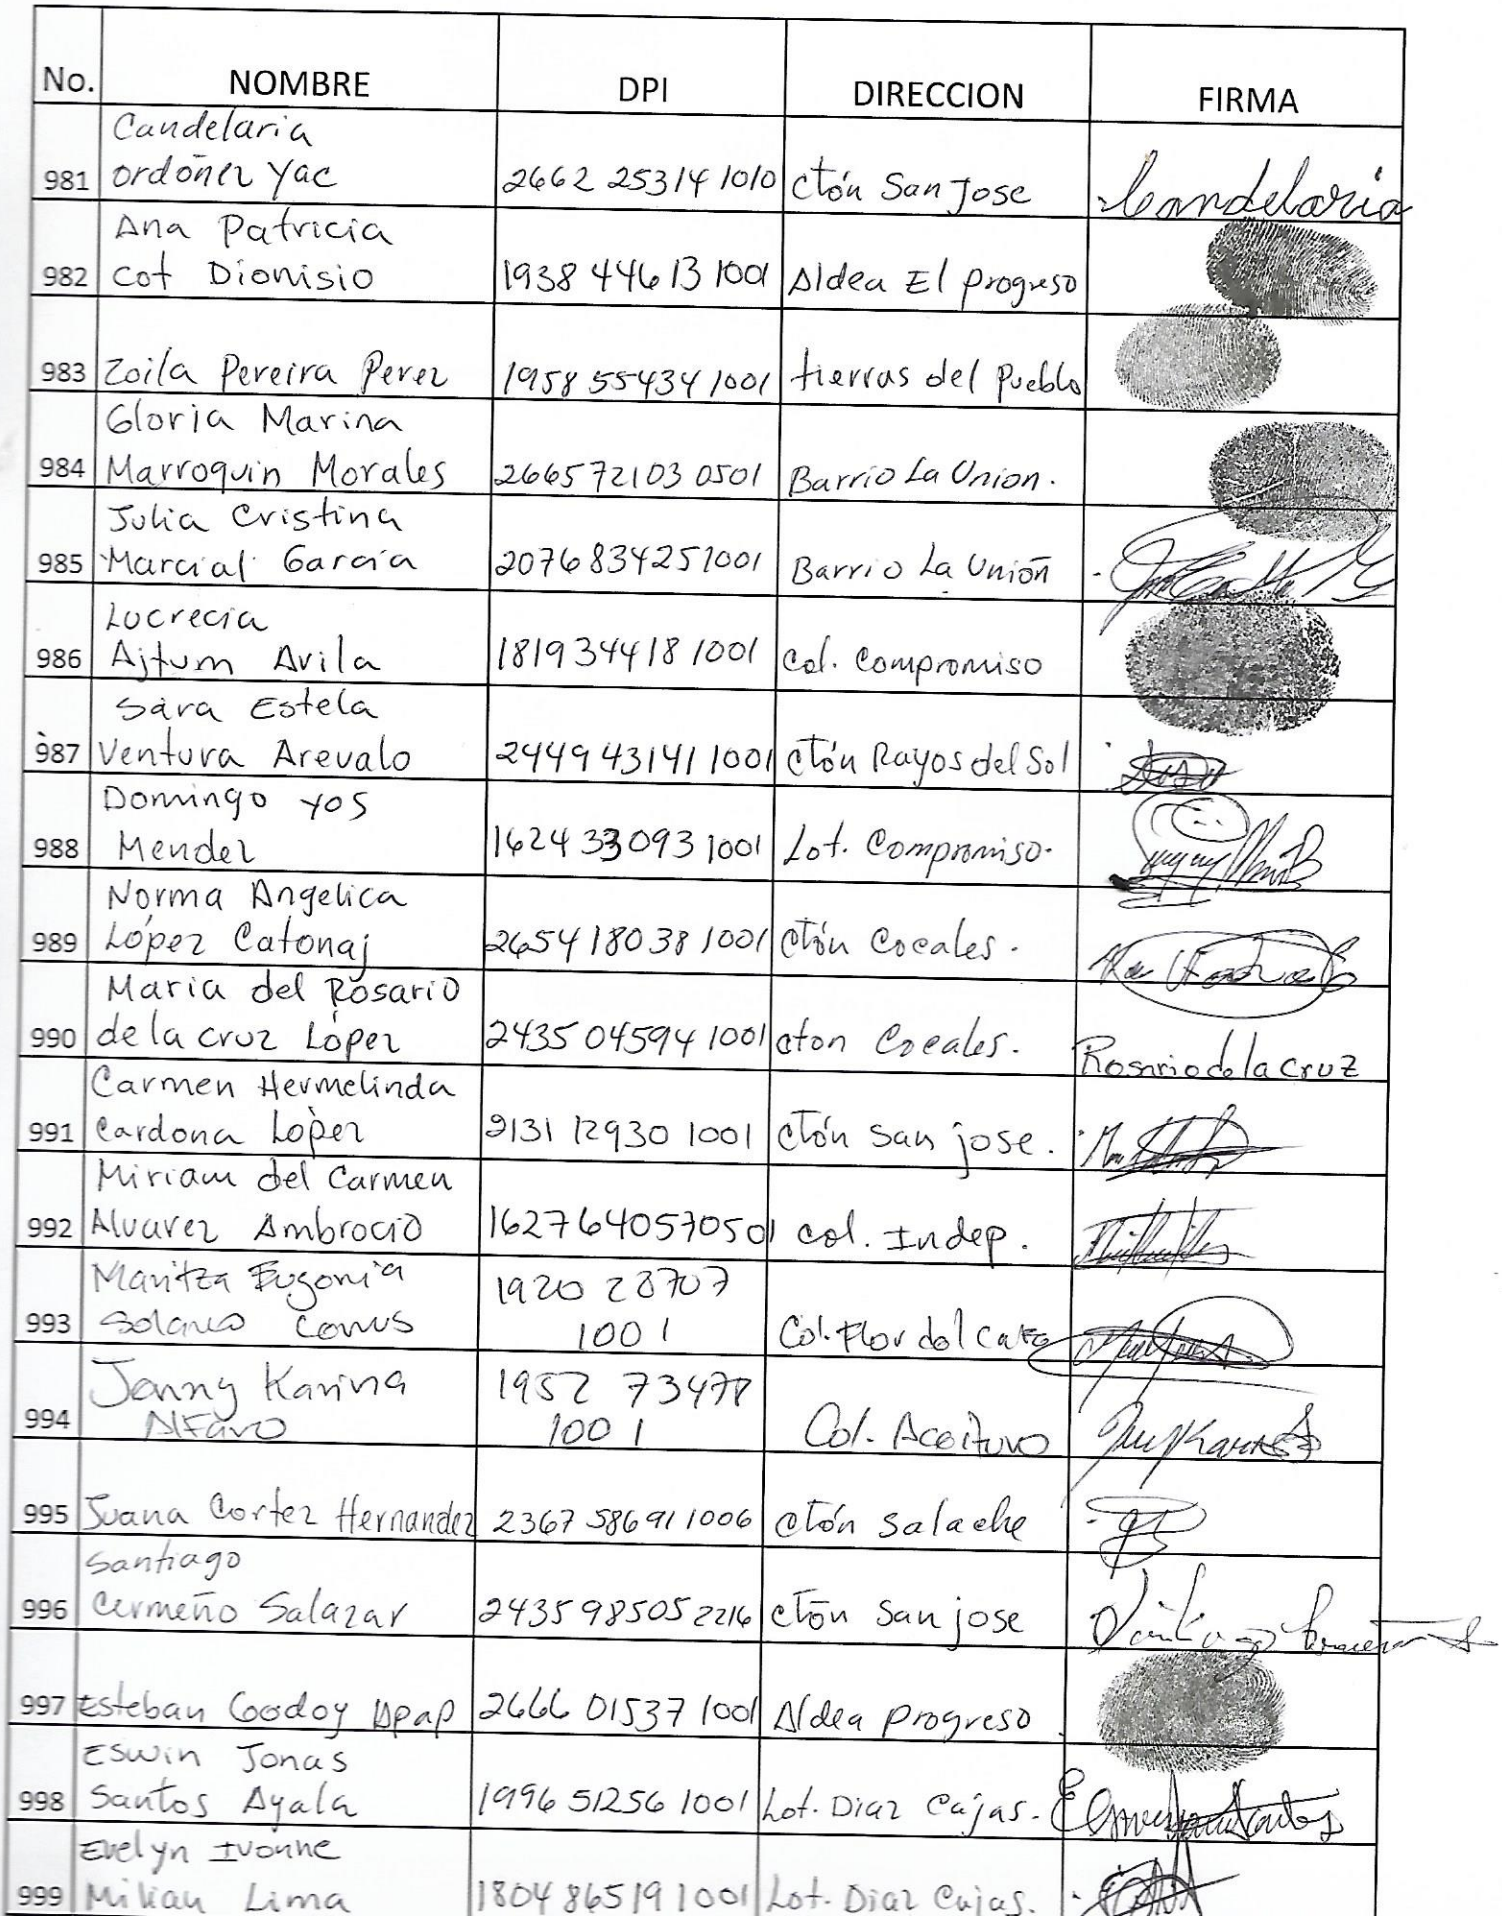 No. NOMBRE DPI DIRECCION FIRMA
Candelaria
981 Ordoñez Yac 2662 25314 1010 Ctón San Jose Candelaria
Ana Patricia
982 Cot Dionisio 1938 44613 1001 Aldea El progreso
983 Zoila Pereira Perez 1958 55434 1001 tierras del Pueblo
Gloria Marina
984 Marroquin Morales 2665 72103 0501 Barrio La Union.
Julia Cristina
985 Marcial Garcia 2076 83425 1001 Barrio La Unión
Lucrecia
986 Ajtum Avila 1819 34418 1001 Col. Compromiso
Sara Estela
987 Ventura Arevalo 2449 43141 1001 Ctón Rayos del Sol
Domingo Yos
988 Mendez 1624 33093 1001 Lot. Compromiso.
Norma Angelica
989 López Catonaj 2654 18038 1001 Ctón Cocales.
Maria del Rosario
990 de la cruz López 2435 04594 1001 cton Cocales. Rosario de la cruz
Carmen Hermelinda
991 Cardona Lopez 2131 12930 1001 Ctón San jose.
Miriam del Carmen
992 Alvarez Ambrocio 1627640570501 Col. Indep.
Maritza Eugenia 1920 28707
993 Solares 1001 Col. Flor del Cafe
Jenny Karina 1952 73478
994 Alfaro 1001 Col. Aceituno
995 Juana Cortez Hernandez 2367 58691 1006 Ctón Salache
Santiago
996 Cermeño Salazar 2435 98505 2216 Ctón San jose Santiago
997 Esteban Godoy Apap 2666 01537 1001 Aldea progreso
Eswin Jonas
998 Santos Ayala 1996 51256 1001 Lot. Diaz Cajas.
Evelyn Ivonne
999 Milian Lima 1804 86519 1001 Lot. Diaz Cajas.